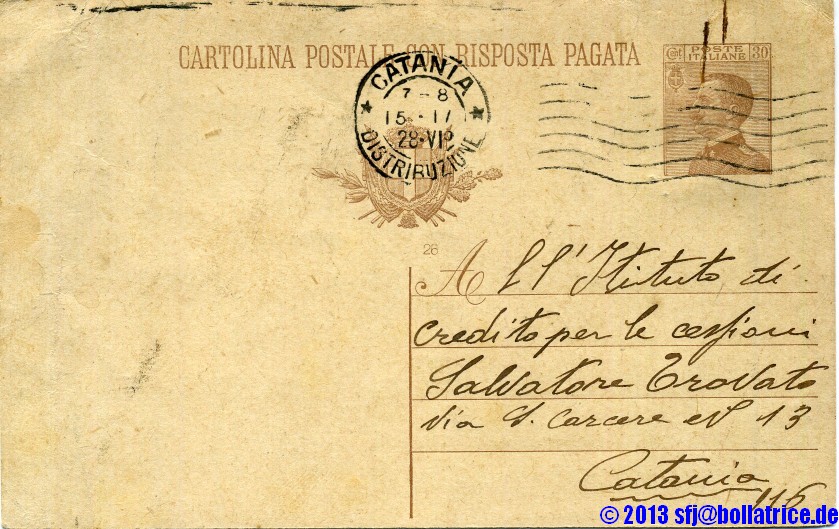 CARTOLINA POSTALE CON RISPOSTA PAGATA
Cent POSTE ITALIANE 30
CATANIA
7-8
15·17
28·VI
DISTRIBUZIONE
26
All'Istituto di
credito per le cessioni
Salvatore Trovato
Via S. Carcere N 13
Catania
116
© 2013 sfj@bollatrice.de